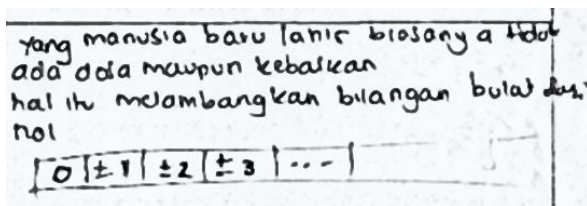 yang manusia baru lahir biasanya tidak
ada dosa maupun kebaikan
hal itu melambangkan bilangan bulat dari
nol
0 | ±1 | ±2 | ±3 | ...